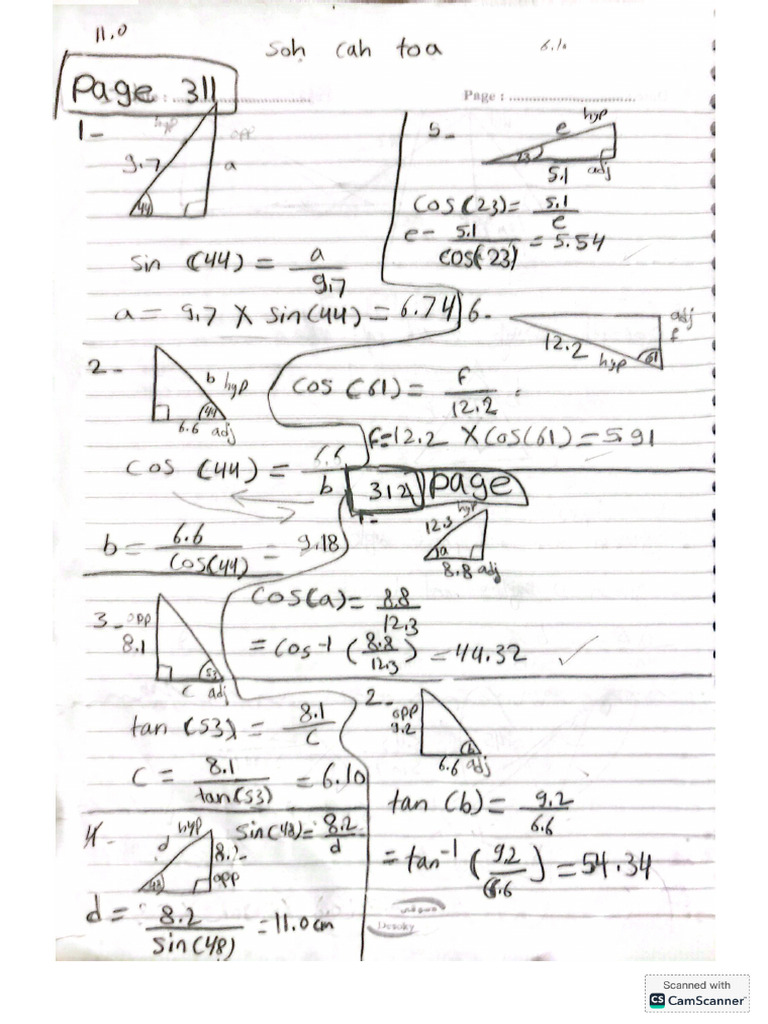 11.0
soh cah toa
6.10
Page 311
Page :
1-
hyp
opp
9.7
a
44
sin (44) = a/9.7
a = 9.7 X sin(44) = 6.74
2-
b hyp
44
6.6 adj
cos (44) = 6.6/b
b = 6.6/cos(44) = 9.18
3- opp
8.1
53
c adj
tan (53) = 8.1/c
c = 8.1/tan(53) = 6.10
4-
hyp
d
8.2
opp
48
sin(48) = 8.2/d
d = 8.2/sin(48) = 11.0 cm
5-
hyp
e
23
5.1 adj
cos(23) = 5.1/e
e - 5.1/cos(23) = 5.54
6-
adj
f
12.2
hyp
61
cos (61) = f/12.2
f = 12.2 X cos(61) = 5.91
312 page
1-
12.3 hyp
a
8.8 adj
cos(a) = 8.8/12.3
= cos-1 (8.8/12.3) = 44.32
2-
opp
9.2
b
6.6 adj
tan (b) = 9.2/6.6
= tan-1 (9.2/6.6) = 54.34
Desoky
Scanned with
CS CamScanner